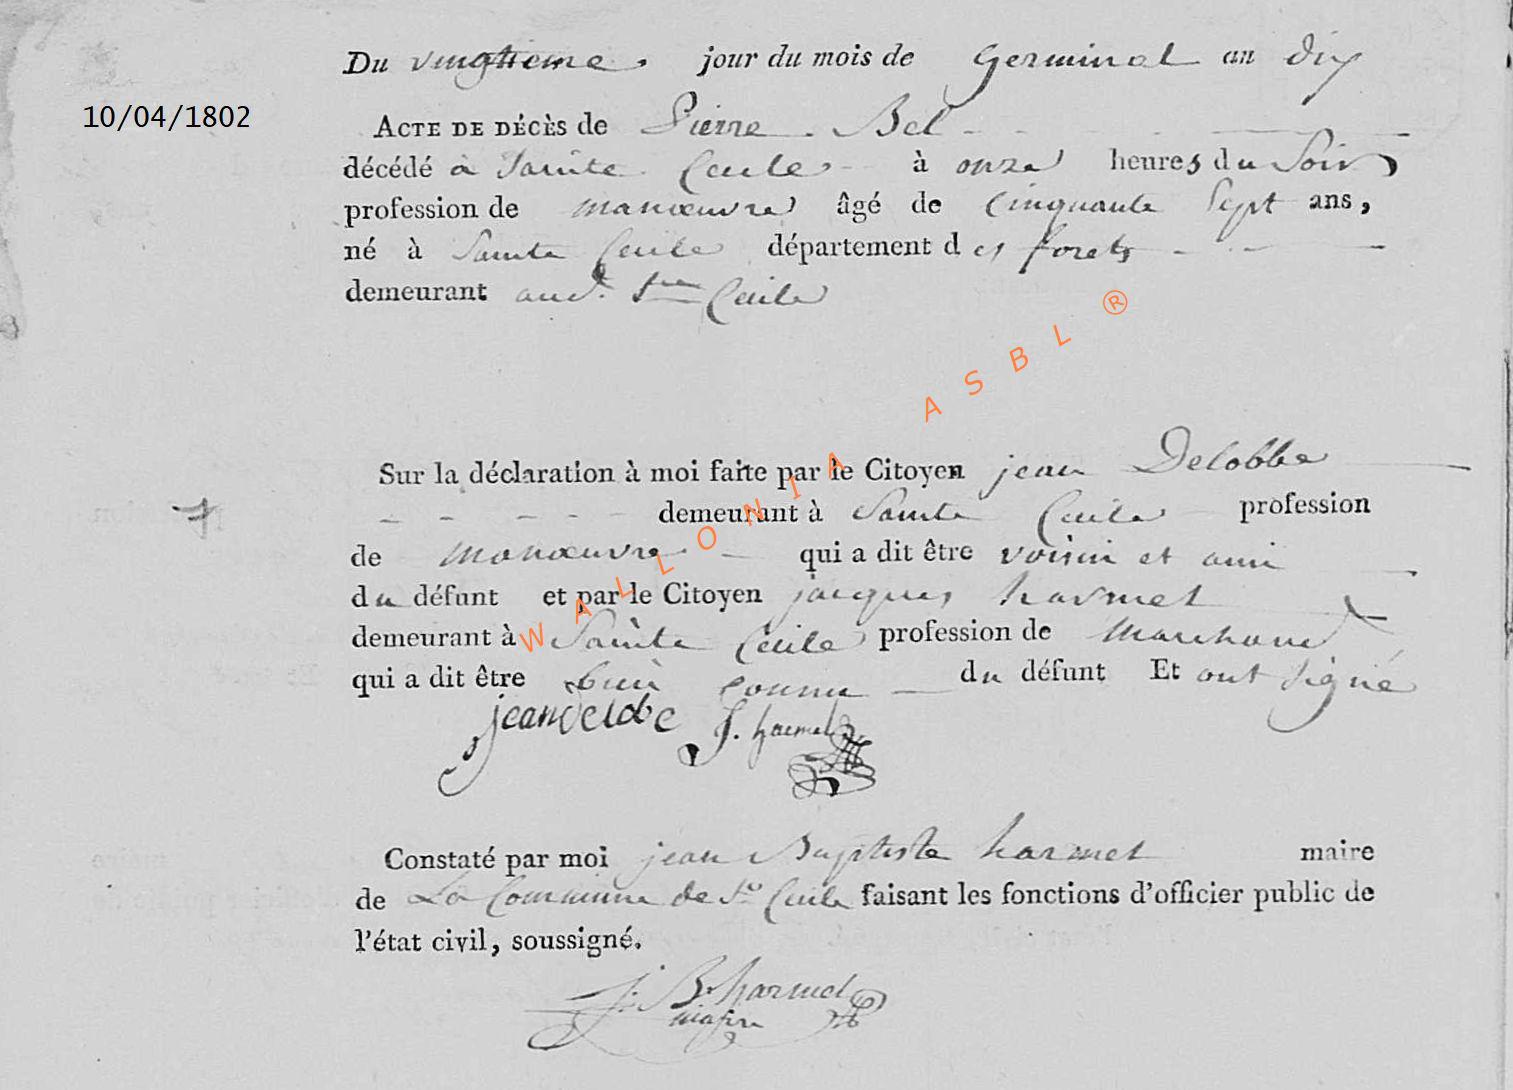 Du vingtieme jour du mois de Germinal an dix
10/04/1802
ACTE DE DÉCÈS de Pierre Bel
décédé à Sainte Cecile à onze heures du Soir
profession de manœuvre âgé de Cinquante Sept ans,
né à Sainte Cecile département des forets
demeurant aud. Ste Cecile
WALLONIA ASBL ®
Sur la déclaration à moi faite par le Citoyen jean Delobbe
demeurant à Sainte Cecile profession
de manœuvre qui a dit être voisin et ami
du défunt et par le Citoyen jacques harmel
demeurant à Sainte Cecile profession de marchand
qui a dit être bien connu du défunt Et ont signé
jean delobe J. harmel
Constaté par moi jean Baptiste harmel maire
de La Commune de Ste Cecile faisant les fonctions d'officier public de
l'état civil, soussigné.
J. B. harmel
maire